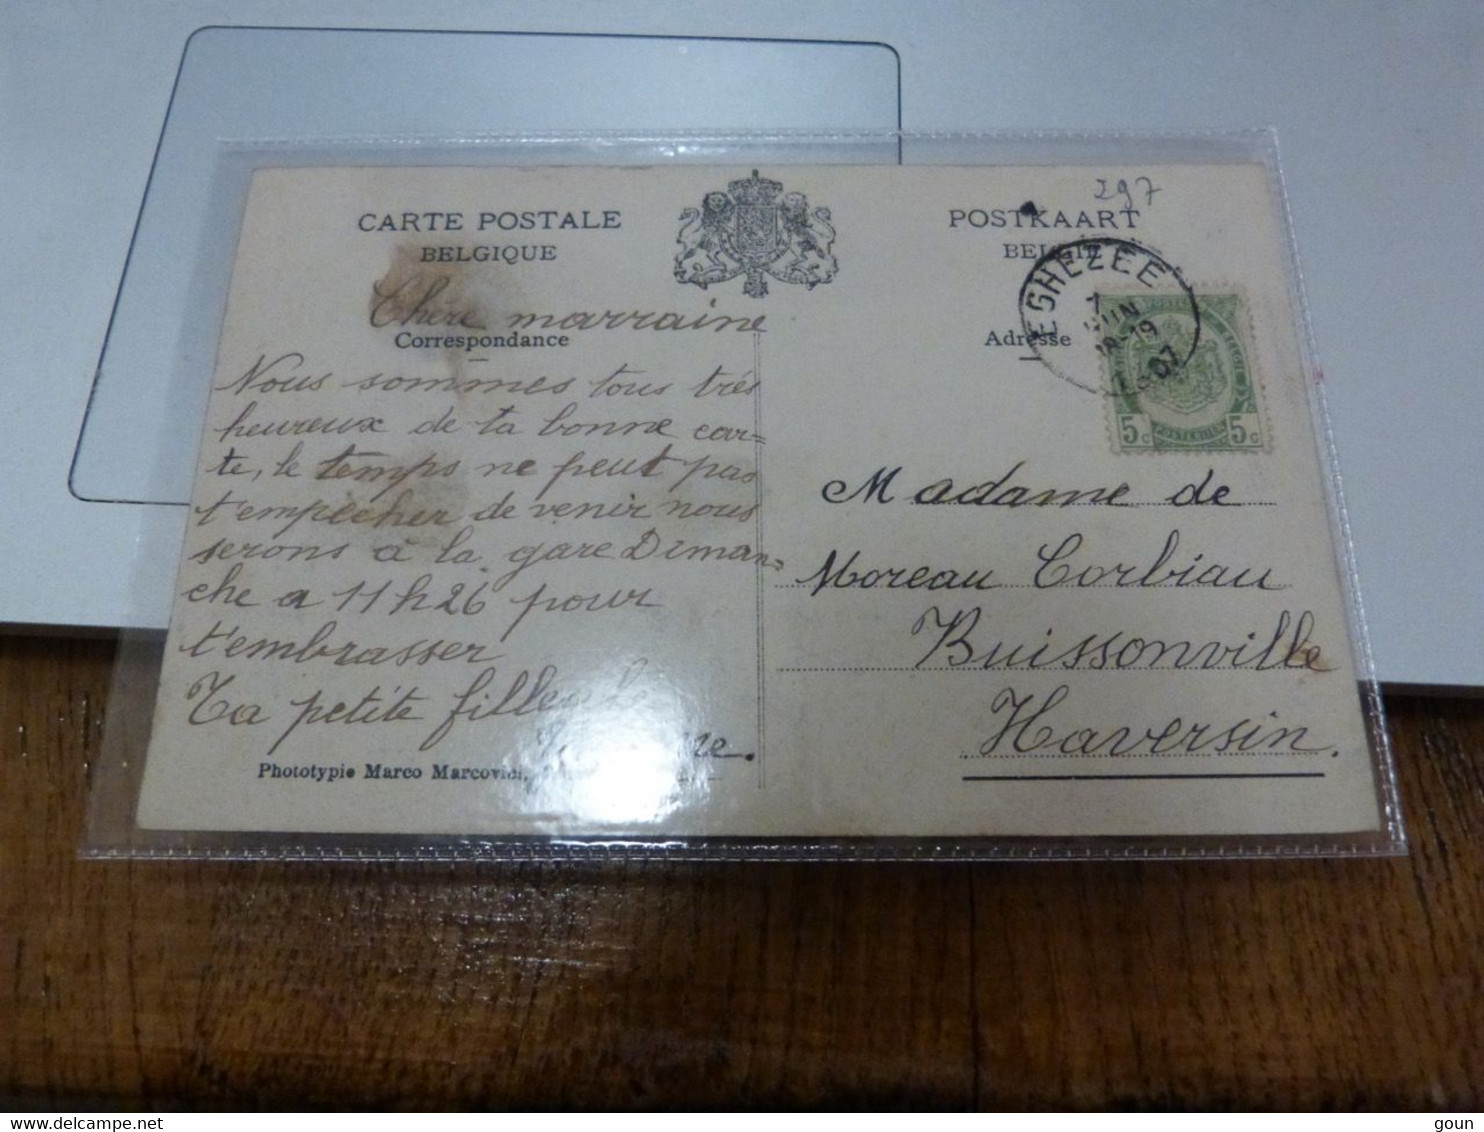 297
CARTE POSTALE
BELGIQUE
POSTKAART
BELGIE
EGHEZEE
7
JUIN
19
07
Chère marraine
Correspondance
Adresse
Nous sommes tous très
heureux de ta bonne car=
te, le temps ne peut pas
t'empêcher de venir nous
serons à la gare Diman=
che a 11 h 26 pour
t'embrasser
Ta petite filleule
5c POSTERIJEN 5c
Madame de
Moreau Corbiau
Buissonville
Haversin.
Phototypie Marco Marcovici,
www.delcampe.net
goun